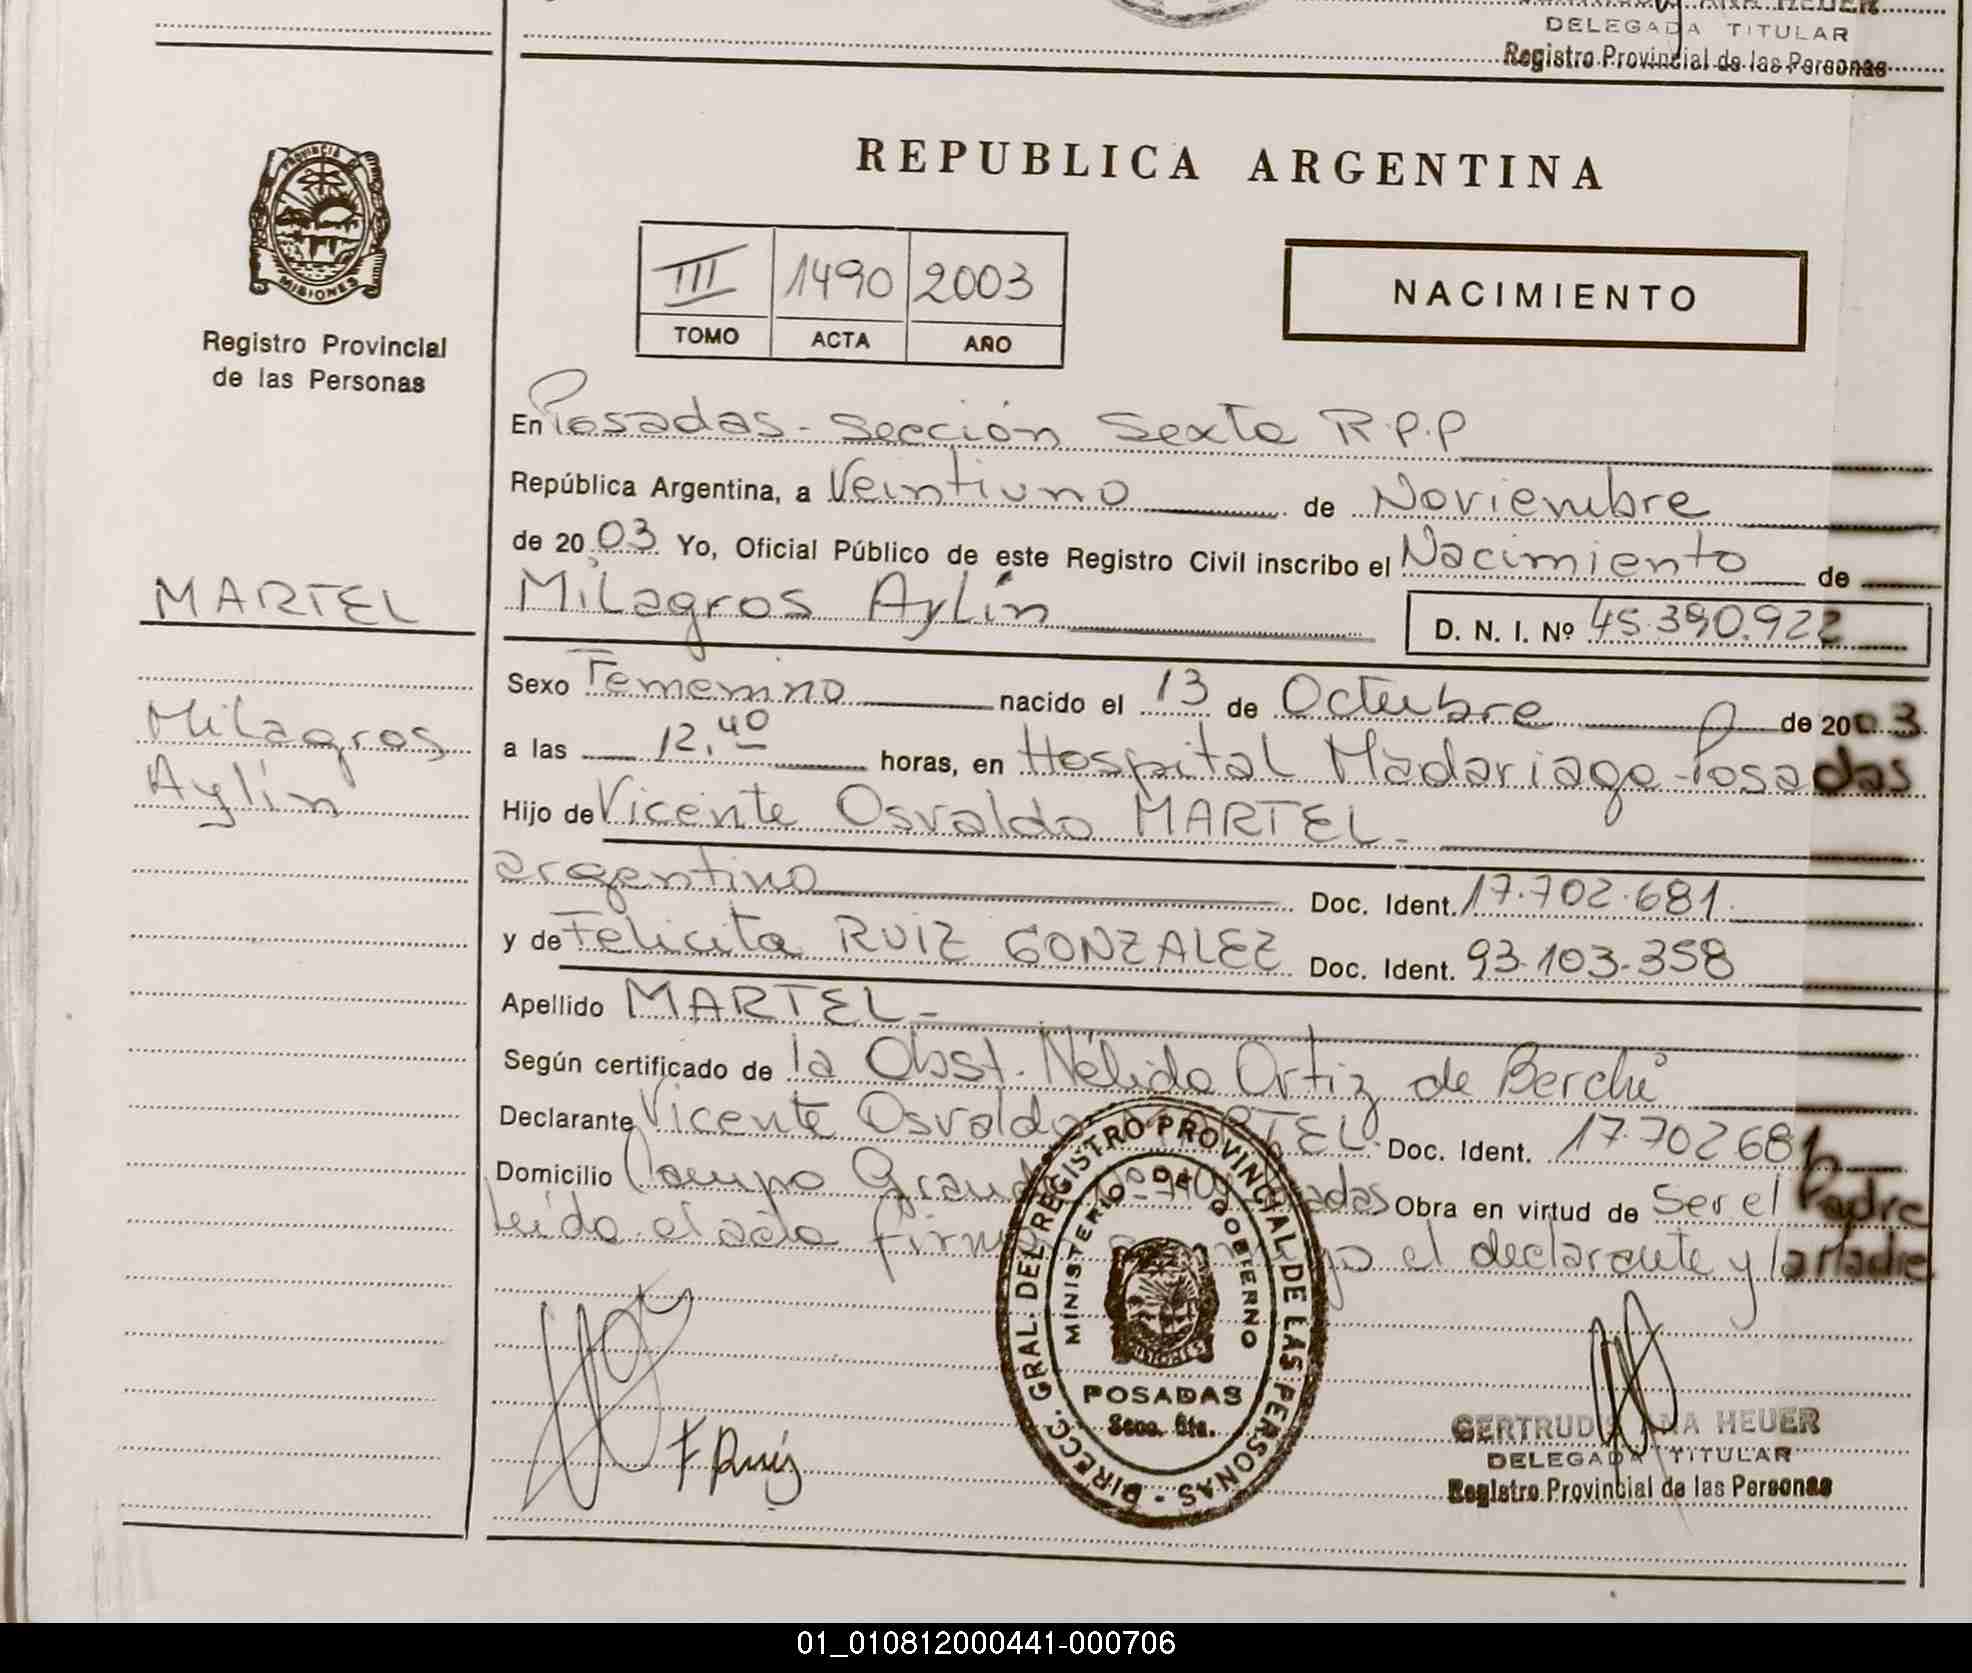 DELEGADA TITULAR
Registro Provincial de las Personas
PROVINCIA DE
MISIONES
Registro Provincial
de las Personas
REPUBLICA ARGENTINA
III 1490 2003
TOMO ACTA AÑO
NACIMIENTO
En Posadas - Sección Sexta R.P.P
República Argentina, a Veintiuno de Noviembre
de 2003 Yo, Oficial Público de este Registro Civil inscribo el Nacimiento de
MARTEL
Milagros Aylín D. N. I. Nº 45.390.922
Sexo Femenino nacido el 13 de Octubre de 2003
Milagros
Aylín
a las 12,40 horas, en Hospital Madariaga - Posadas
Hijo de Vicente Osvaldo MARTEL.
argentino Doc. Ident. 17.702.681.
y de Felicita RUIZ GONZALEZ Doc. Ident. 93.103.358
Apellido MARTEL.-
Según certificado de la Obst. Nélida Ortiz de Berchi
Declarante Vicente Osvaldo MARTEL. Doc. Ident. 17.702.681
Domicilio Campo Grande Nº Posadas Obra en virtud de ser el Padre
Leído el acta firman conmigo el declarante y la Madre
DIRECC. GRAL. DEL REGISTRO PROVINCIAL DE LAS PERSONAS -
MINISTERIO DE GOBIERNO
MISIONES
POSADAS
Secc. 6ta.
F Ruiz
GERTRUDIS ANA HEUER
DELEGADA TITULAR
Registro Provincial de las Personas
01_010812000441-000706